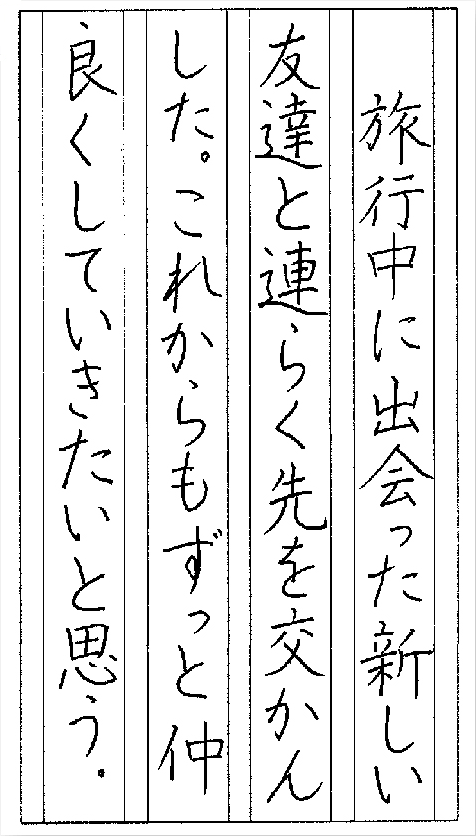 旅行中に出会った新しい
友達と連らく先を交かん
した。これからもずっと仲
良くしていきたいと思う。